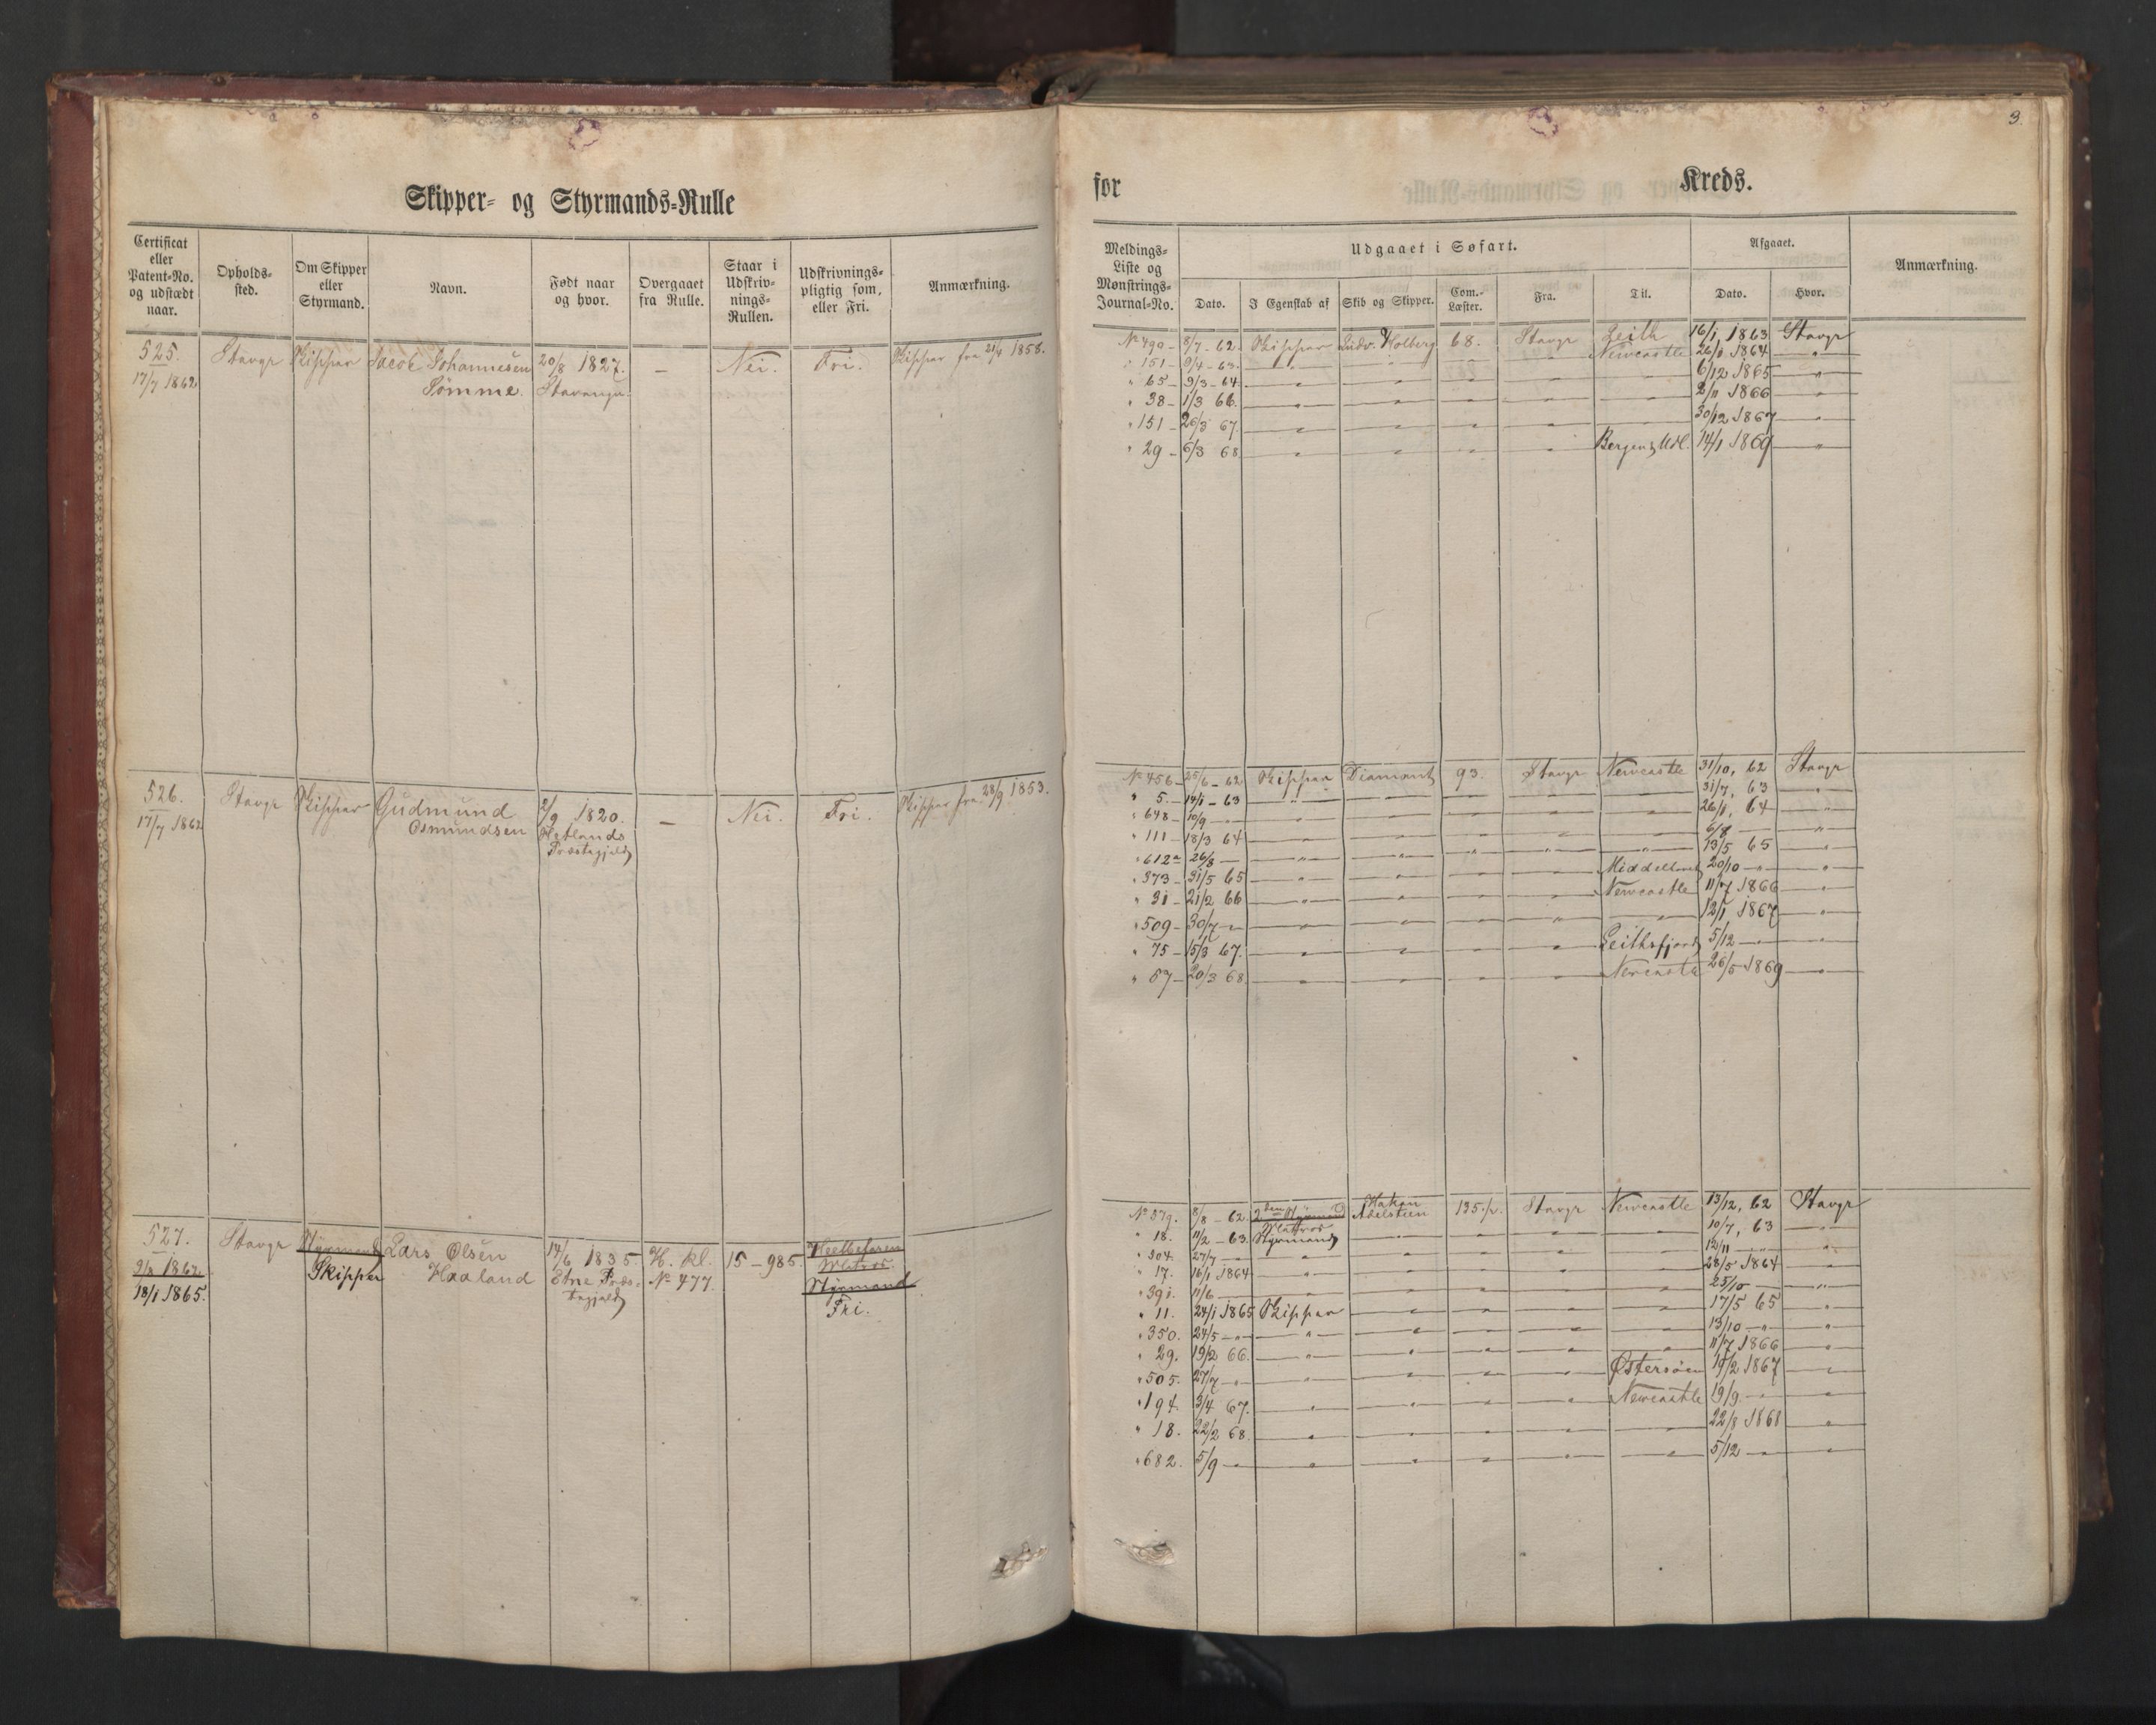 3.
Skipper- og Styrmands-Rulle
Certificat eller Patent-No. og udstædt naar.
Opholds-sted.
Om Skipper eller Styrmand.
Navn.
Født naar og hvor.
Overgaaet fra Rulle.
Staar i Udskriv-nings-Rullen.
Udskrivnings-pligtig som, eller Fri.
Anmærkning.
525. Stavgr Skipper Jacob Johannesen 20/8 1827. — Nei. Fri. Skipper fra 21/4 1858.
17/7 1862 Sömme. Stavanger.
526. Stavgr Skipper Gudmund 2/9 1820. — Nei. Fri. Skipper fra 28/9 1853.
17/7 1862 Osmundsen Hetlands
Præstegjeld
527. Stavgr Styrmand Lars Olsen 14/6 1835. H. kl. 15 – 985. Heelbefaren
9/8 1862 Skipper Haaland Etne Præs- No 477. Matros.
18/1 1865. tegjeld Styrmand
Fri.
for Kreds.
Meldings-Liste og Mønstrings-Journal-No.
Udgaaet i Søfart.
Dato.
I Egenskab af
Skib og Skipper.
Com.-Læster.
Fra.
Til.
Afgaaet.
Dato.
Hvor.
Anmærkning.
No 490 – 8/7 – 62. Skipper Ludv. Holberg 68. Stavgr Leith 16/1 1863 Stavgr
" 151 – 9/4 – 63. — — — — Newcastle 26/1 1864 — " —
" 65 – 9/3 – 64. — " — — " — — " — — " — — 6/12 1865 — " —
" 38 – 1/3 66. — " — — " — — " — — " — — 2/11 1866 — " —
" 151 – 26/3 67. — " — — " — — " — — " — — " — 30/12 1867 — " —
" 29 – 6/3 68 — " — — " — — " — — " — Bergen & Udl. 14/1 1869 — " —
No 456 – 25/6 – 62 Skipper Diamant 93. Stavgr Newcastle 31/10, 62 Stavgr
" 5. – 14/1 – 63 — " — — " — — " — — " — — " — 31/7, 63 — " —
" 648 – 10/9 — " — — " — — " — — " — — " — — " — 26/1, 64 — " —
" 111 – 18/3 64 — " — — " — — " — — " — — " — 6/8 — — " —
" 612a 26/8 — — " — — " — — " — — " — — " — 13/5 65 — " —
" 373 – 31/5 65 — " — — " — — " — — " — Middelhavet 20/10 — " — — " —
" 31 – 21/2 66 — " — — " — — " — — " — Newcastle 11/7 1866 — " —
" 509 – 30/7 — " — — " — — " — — " — — " — — " — 12/1 1867 — " —
" 75 – 15/3 67. — " — — " — — " — — " — Leithsfjord 5/12 — " — — " —
" 57 – 20/3 68. — " — — " — — " — — " — Newcastle 26/5 1869 — " —
No 579. 8/8 – 62. 2den Styrmand Hakon Adelsteen 135 ½. Stavgr Newcastle 13/12, 62 Stavgr
Matros
" 18. 11/2 – 63. Styrmand — " — — " — — " — — " — 10/7, 63 — " —
" 504. 27/7 — — " — — " — — " — — " — — " — 12/11 — " — — " —
" 17. 16/1 1864 — " — — " — — " — — " — — " — 28/5 1864 — " —
" 391. 11/6 — — " — — " — — " — — " — — " — 25/10 — — " —
" 11. 24/1 1865 Skipper — " — — " — — " — — " — 17/5 65 — " —
" 350. 24/5 — " — — " — — " — — " — — " — — " — 13/10 — " — — " —
" 29. 19/2 66. — " — — " — — " — — " — — " — 11/7 1866 — " —
" 505. 27/7 — " — — " — — " — — " — — " — Østersøen 19/2 1867 — " —
" 194. 3/4 67. — " — — " — — " — — " — Newcastle 19/9. — " — — " —
" 18. 22/2 68. — " — — " — — " — — " — — " — 22/8 1868 — " —
" 682. 5/9 — " — — " — — " — — " — — " — — " — 5/12 — " — — " —